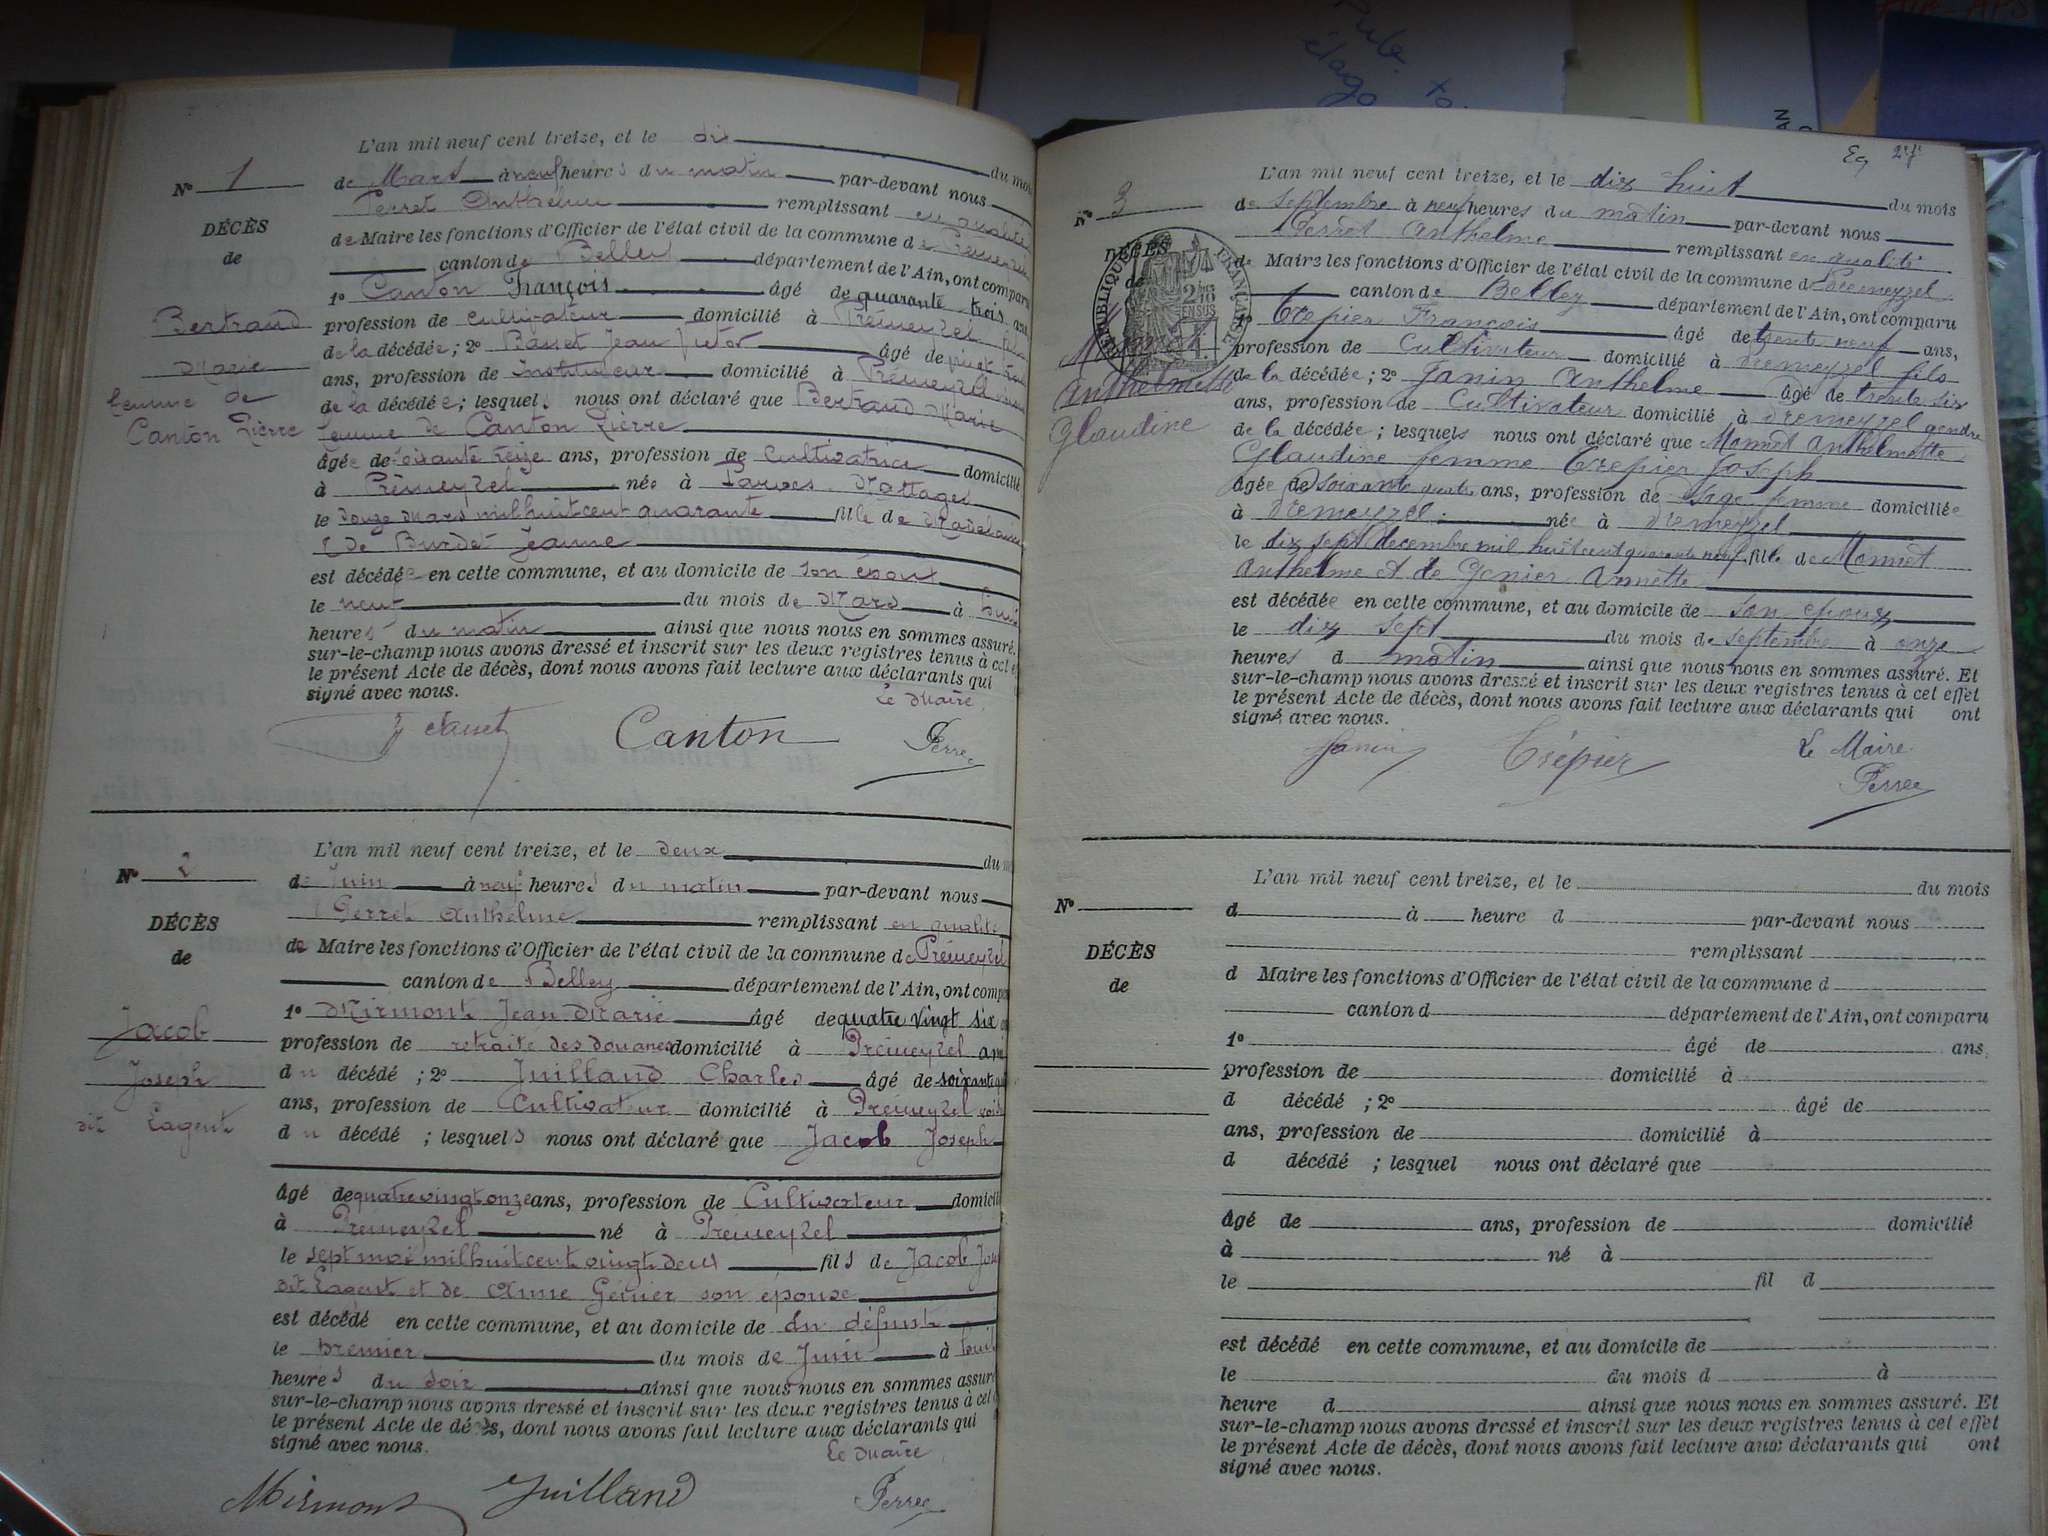 Eq 2 f
L'an mil neuf cent treize, et le dix du mois
N° 1
de Mars à neuf heures du matin par-devant nous
Perret Anthelme remplissant en qualité
DÉCÈS
de Maire les fonctions d'Officier de l'état civil de la commune de Prémeyzel
de
canton de Belley département de l'Ain, ont comparu
1° Canton François âgé de quarante trois ans
Bertrand
profession de cultivateur domicilié à Prémeyzel fils
Marie
de la décédée; 2° Basset Jean Victor âgé de vingt
femme de
ans, profession de Instituteur domicilié à Prémeyzel
Canton Pierre
de la décédée; lesquels nous ont déclaré que Bertrand Marie
femme de Canton Pierre
âgée de soixante treize ans, profession de Cultivatrice domicilié
à Prémeyzel née à
le douze Mars mil huit cent quarante fille de
de Burdet Jeanne
est décédée en cette commune, et au domicile de son époux
le neuf du mois de Mars à huit
heures du matin ainsi que nous nous en sommes assuré.
sur-le-champ nous avons dressé et inscrit sur les deux registres tenus à cet e
le présent Acte de décès, dont nous avons fait lecture aux déclarants qui
signé avec nous.
Le Maire,
Canton Perret
L'an mil neuf cent treize, et le deux du m
N° 2
de Juin à neuf heures du matin par-devant nous
Perret Anthelme remplissant en qualité
DÉCÈS
de Maire les fonctions d'Officier de l'état civil de la commune de Prémeyzel
de
canton de Belley département de l'Ain, ont compa
1° Mirmont Jean Marie âgé de quatre vingt six
Jacob
profession de retraité des douanes domicilié à Prémeyzel ami
Joseph
du décédé; 2° Juilland Charles âgé de soixante
dit Lagent
ans, profession de Cultivateur domicilié à Prémeyzel
du décédé; lesquels nous ont déclaré que Jacob Joseph
âgé de quatre vingt onze ans, profession de Cultivateur domicili
à Premeyzel né à Premeyzel
le sept mai mil huit cent vingt deux fils de Jacob Jos
dit Lagent et de Anne Génier son épouse
est décédé en cette commune, et au domicile de du défunt
le premier du mois de Juin à huit
heures du soir ainsi que nous nous en sommes assuré
sur-le-champ nous avons dressé et inscrit sur les deux registres tenus à cet
le présent Acte de décès, dont nous avons fait lecture aux déclarants qui
signé avec nous.
Le Maire,
Mirmont Juilland Perret
L'an mil neuf cent treize, et le dix huit du mois
N° 3
de septembre à neuf heures du matin par-devant nous
Perret Anthelme remplissant en qualité
DÉCÈS
de Maire les fonctions d'Officier de l'état civil de la commune d Premeyzel
de
RÉPUBLIQUE FRANÇAISE
canton de Belley département de l'Ain, ont comparu
1° Trepier François âgé de trente neuf ans,
profession de Cultivateur domicilié à Premeyzel fils
Anthelmette
de la décédée; 2° Janin Anthelme âgé de trente six
Glaudine
ans, profession de Cultivateur domicilié à Premeyzel gendre
de la décédée; lesquels nous ont déclaré que Monnet Anthelmette
Glaudine femme Trepier Joseph
âgée de soixante quatre ans, profession de sage femme domiciliée
à Premeyzel née à Premeyzel
le dix sept decembre mil huit cent quarante neuf fille de Monnet
Anthelme et de Genier Annette
est décédée en cette commune, et au domicile de son epoux
le dix sept du mois de septembre à onze
heures d matin ainsi que nous nous en sommes assuré. Et
sur-le-champ nous avons dressé et inscrit sur les deux registres tenus à cet effet
le présent Acte de décès, dont nous avons fait lecture aux déclarants qui ont
signé avec nous.
Janin Trépier Le Maire
Perret
L'an mil neuf cent treize, et le du mois
N°
d à heure d par-devant nous
remplissant
DÉCÈS
d Maire les fonctions d'Officier de l'état civil de la commune d
de
canton d département de l'Ain, ont comparu
1° âgé de ans,
profession de domicilié à
d décédé ; 2° âgé de
ans, profession de domicilié à
d décédé ; lesquel nous ont déclaré que
âgé de ans, profession de domicilié
à né à
le fil d
est décédé en cette commune, et au domicile de
le du mois d à
heure d ainsi que nous nous en sommes assuré. Et
sur-le-champ nous avons dressé et inscrit sur les deux registres tenus à cet effet
le présent Acte de décès, dont nous avons fait lecture aux déclarants qui ont
signé avec nous.